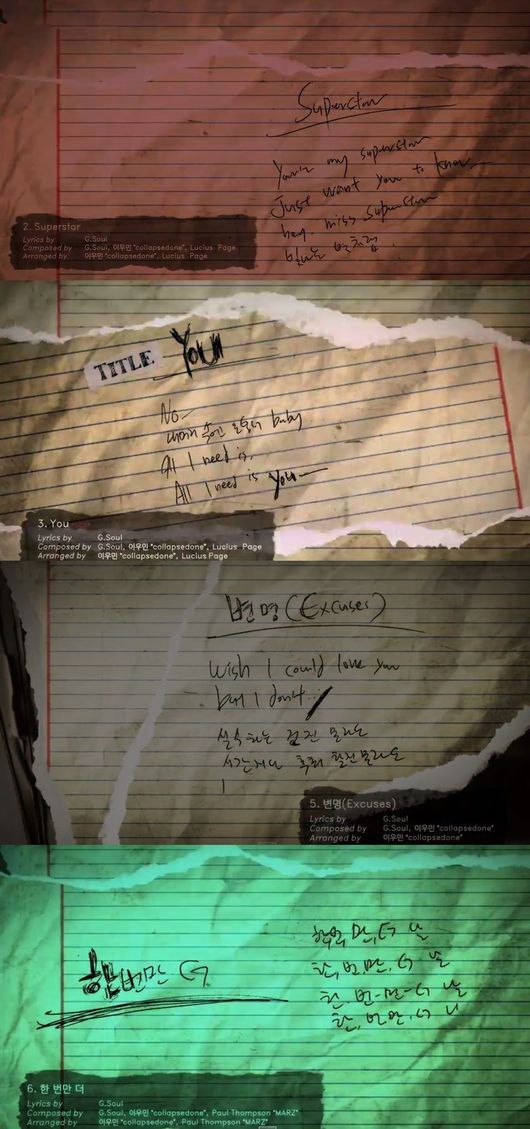 Superstar
You're my superstar
Just want you to know
hey. miss superstar
빛나는 별처럼
2. Superstar
Lyrics by G.Soul
Composed by G.Soul, 이우민 "collapsedone", Lucius Page
Arranged by 이우민 "collapsedone", Lucius Page
TITLE You
No
baby
All I need is,
All I need is you
3. You
Lyrics by G.Soul
Composed by G.Soul, 이우민 "collapsedone", Lucius Page
Arranged by 이우민 "collapsedone", Lucius Page
변명(Excuses)
Wish I could love you
but I don't...
실수하는 건진 몰라도
시간 지나 후회 할진 몰라도
I
5. 변명(Excuses)
Lyrics by G.Soul
Composed by G.Soul, 이우민 "collapsedone"
Arranged by 이우민 "collapsedone"
한번만 G
한, 번, 만, G 날
6. 한 번만 더
Lyrics by G.Soul
Composed by G.Soul, 이우민 "collapsedone", Paul Thompson "MARZ"
Arranged by 이우민 "collapsedone", Paul Thompson "MARZ"